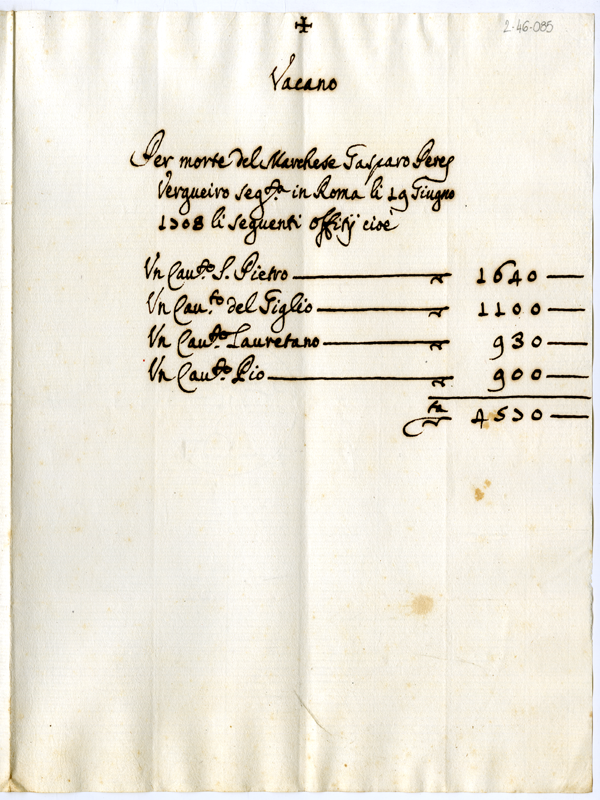 ✠
2-46-085
Vacano
Per morte del Marchese Gasparo Peres
Vergueiro seg.ta in Roma li 19 Giugno
1708 li seguenti offitij cioè
Un Cau.to S. Pietro — 1640 —
Un Cau.to del Giglio — 1100 —
Un Cau.to Lauretano — 930 —
Un Cau.to Pio — 900 —
4570 —